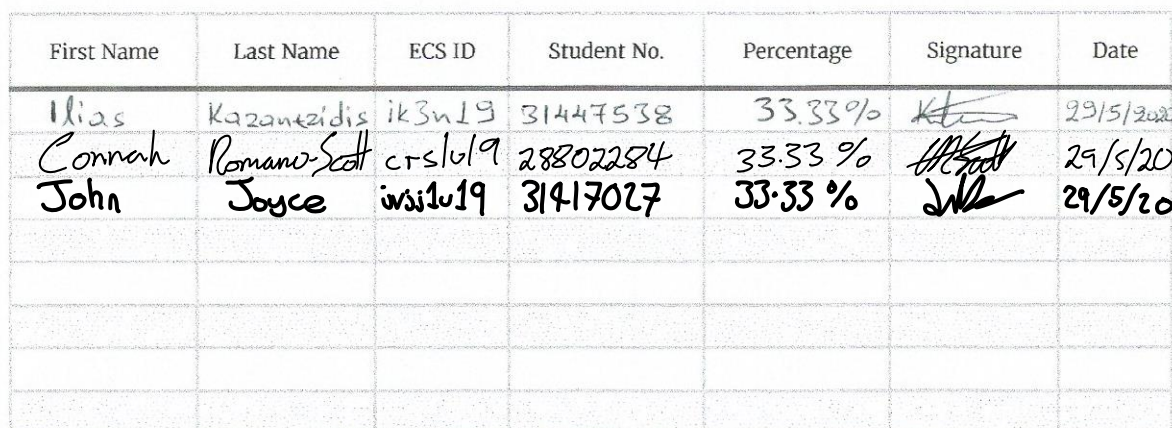 First Name Last Name ECS ID Student No. Percentage Signature Date
Ilias Kazantzidis ik3n19 31447538 33.33% 29/5/2020
Connah Romano-Scott crs1u19 28802284 33.33 % 29/5/20
John Joyce 31417027 33.33 % 29/5/20